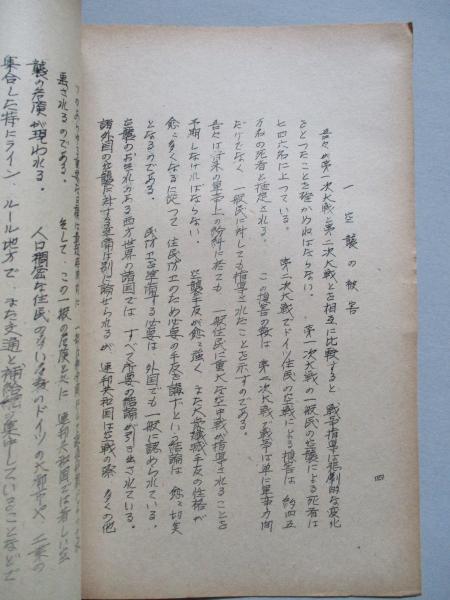 四
一 空襲の被害
吾々が第一次大戦と第二次大戦とを相互に比較すると 戦争指導は根本的な変化
をとったことを確かめねばならない。 第一次大戦の一般民の空襲による死者は
七四六名に上っている。 第二次大戦でドイツ住民の空戦による損害は 約四五
万の死者と推定される。 この損害の数は 第二次大戦で戦争は単に軍事方面
だけでなく 一般民に対しても指導されたことを示すのである。
吾々は将来の軍事上の紛糾に於ても 一般住民に重大な空中戦が指導されることを
予期しなければならない。 空襲手段が愈々強く また大量殲滅手段の性格が
愈々多くなるに従って 住民防空のため必要の手段を講ずという結論は 愈々切実
となるのである。 民防空を準備する必要は 外国でも一般に認められている。
空襲のおそれのある西方世界の諸国では すべて所要の結論が引き出されている。
諸外国の空襲に対する準備は別に論ぜられるが 連邦共和国は空戦の際 多くの他
悪されるのである。 そして この一般の危険と共に 連邦共和国では著しい空
襲の危険が現われる。 人口稠密な住民の多い多数のドイツの大都市や 工業の
集合した特にライン、ルール地方で また交通と補給施設の集中していることなどで